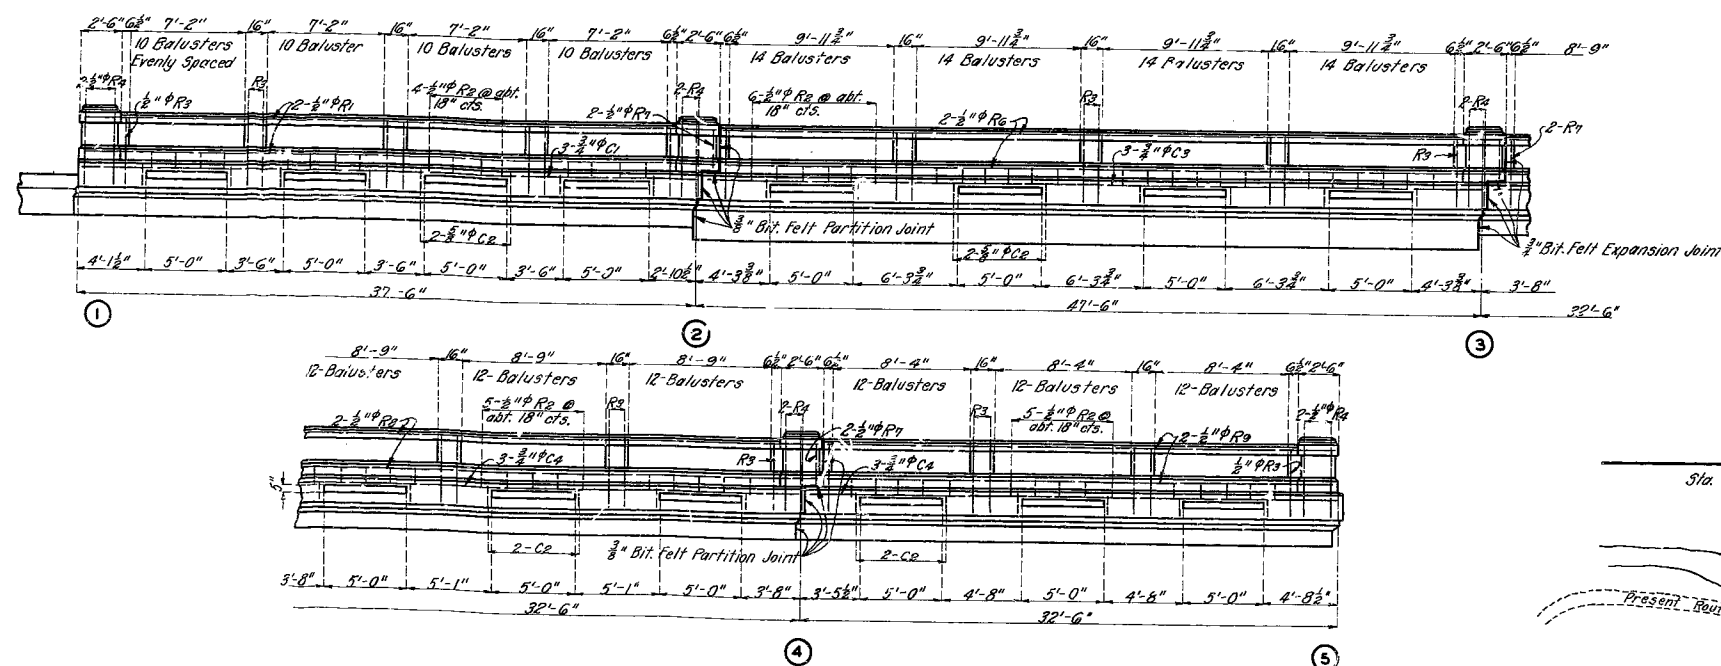 2'-6" 6½" 7'-2" 16" 7'-2" 16" 7'-2" 16" 7'-2" 6½" 2'-6" 6½" 9'-11¾" 16" 9'-11¾" 16" 9'-11¾" 16" 9'-11¾" 6½" 2'-6" 6½" 8'-9"
10 Balusters
Evenly Spaced
10 Baluster
10 Balusters
10 Balusters
14 Balusters
14 Balusters
14 Balusters
14 Balusters
2-½"φR4
½"φR3
R3
2-½"φR1
4-½"φR2 @ abt.
18" cts.
2-½"φR7
2-R4
6-½"φR2 @ abt.
18" cts.
2-½"φR6
R3
2-R4
2-R7
R3
3-¾"φC1
3-¾"φC3
2-⅝"φC2
⅜" Bit. Felt Partition Joint
2-⅝"φC2
¾" Bit. Felt Expansion Joint
4'-1½" 5'-0" 3'-6" 5'-0" 3'-6" 5'-0" 3'-6" 5'-0" 2'-10½" 4'-3⅜" 5'-0" 6'-3¾" 5'-0" 6'-3¾" 5'-0" 6'-3¾" 5'-0" 4'-3⅜" 3'-8"
37'-6" 47'-6" 32'-6"
1 2 3
8'-9" 16" 8'-9" 16" 8'-9" 6½" 2'-6" 6½" 8'-4" 16" 8'-4" 16" 8'-4" 6½" 2'-6"
12-Balusters 12-Balusters 12-Balusters 12-Balusters 12-Balusters 12-Balusters
2-½"φR8
5-½"φR2 @
abt. 18" cts.
R3
2-R4
2-½"φR7
R3
5-½"φR2 @
abt. 18" cts.
2-½"φR9
2-½"φR4
3-¾"φC4
R3
3-¾"φC4
½"φR3
5"
2-C2
⅜" Bit. Felt Partition Joint
2-C2
3'-8" 5'-0" 5'-1" 5'-0" 5'-1" 5'-0" 3'-8" 3'-5½" 5'-0" 4'-8" 5'-0" 4'-8" 5'-0" 4'-8½"
32'-6" 32'-6"
4 5
Sta.
Present